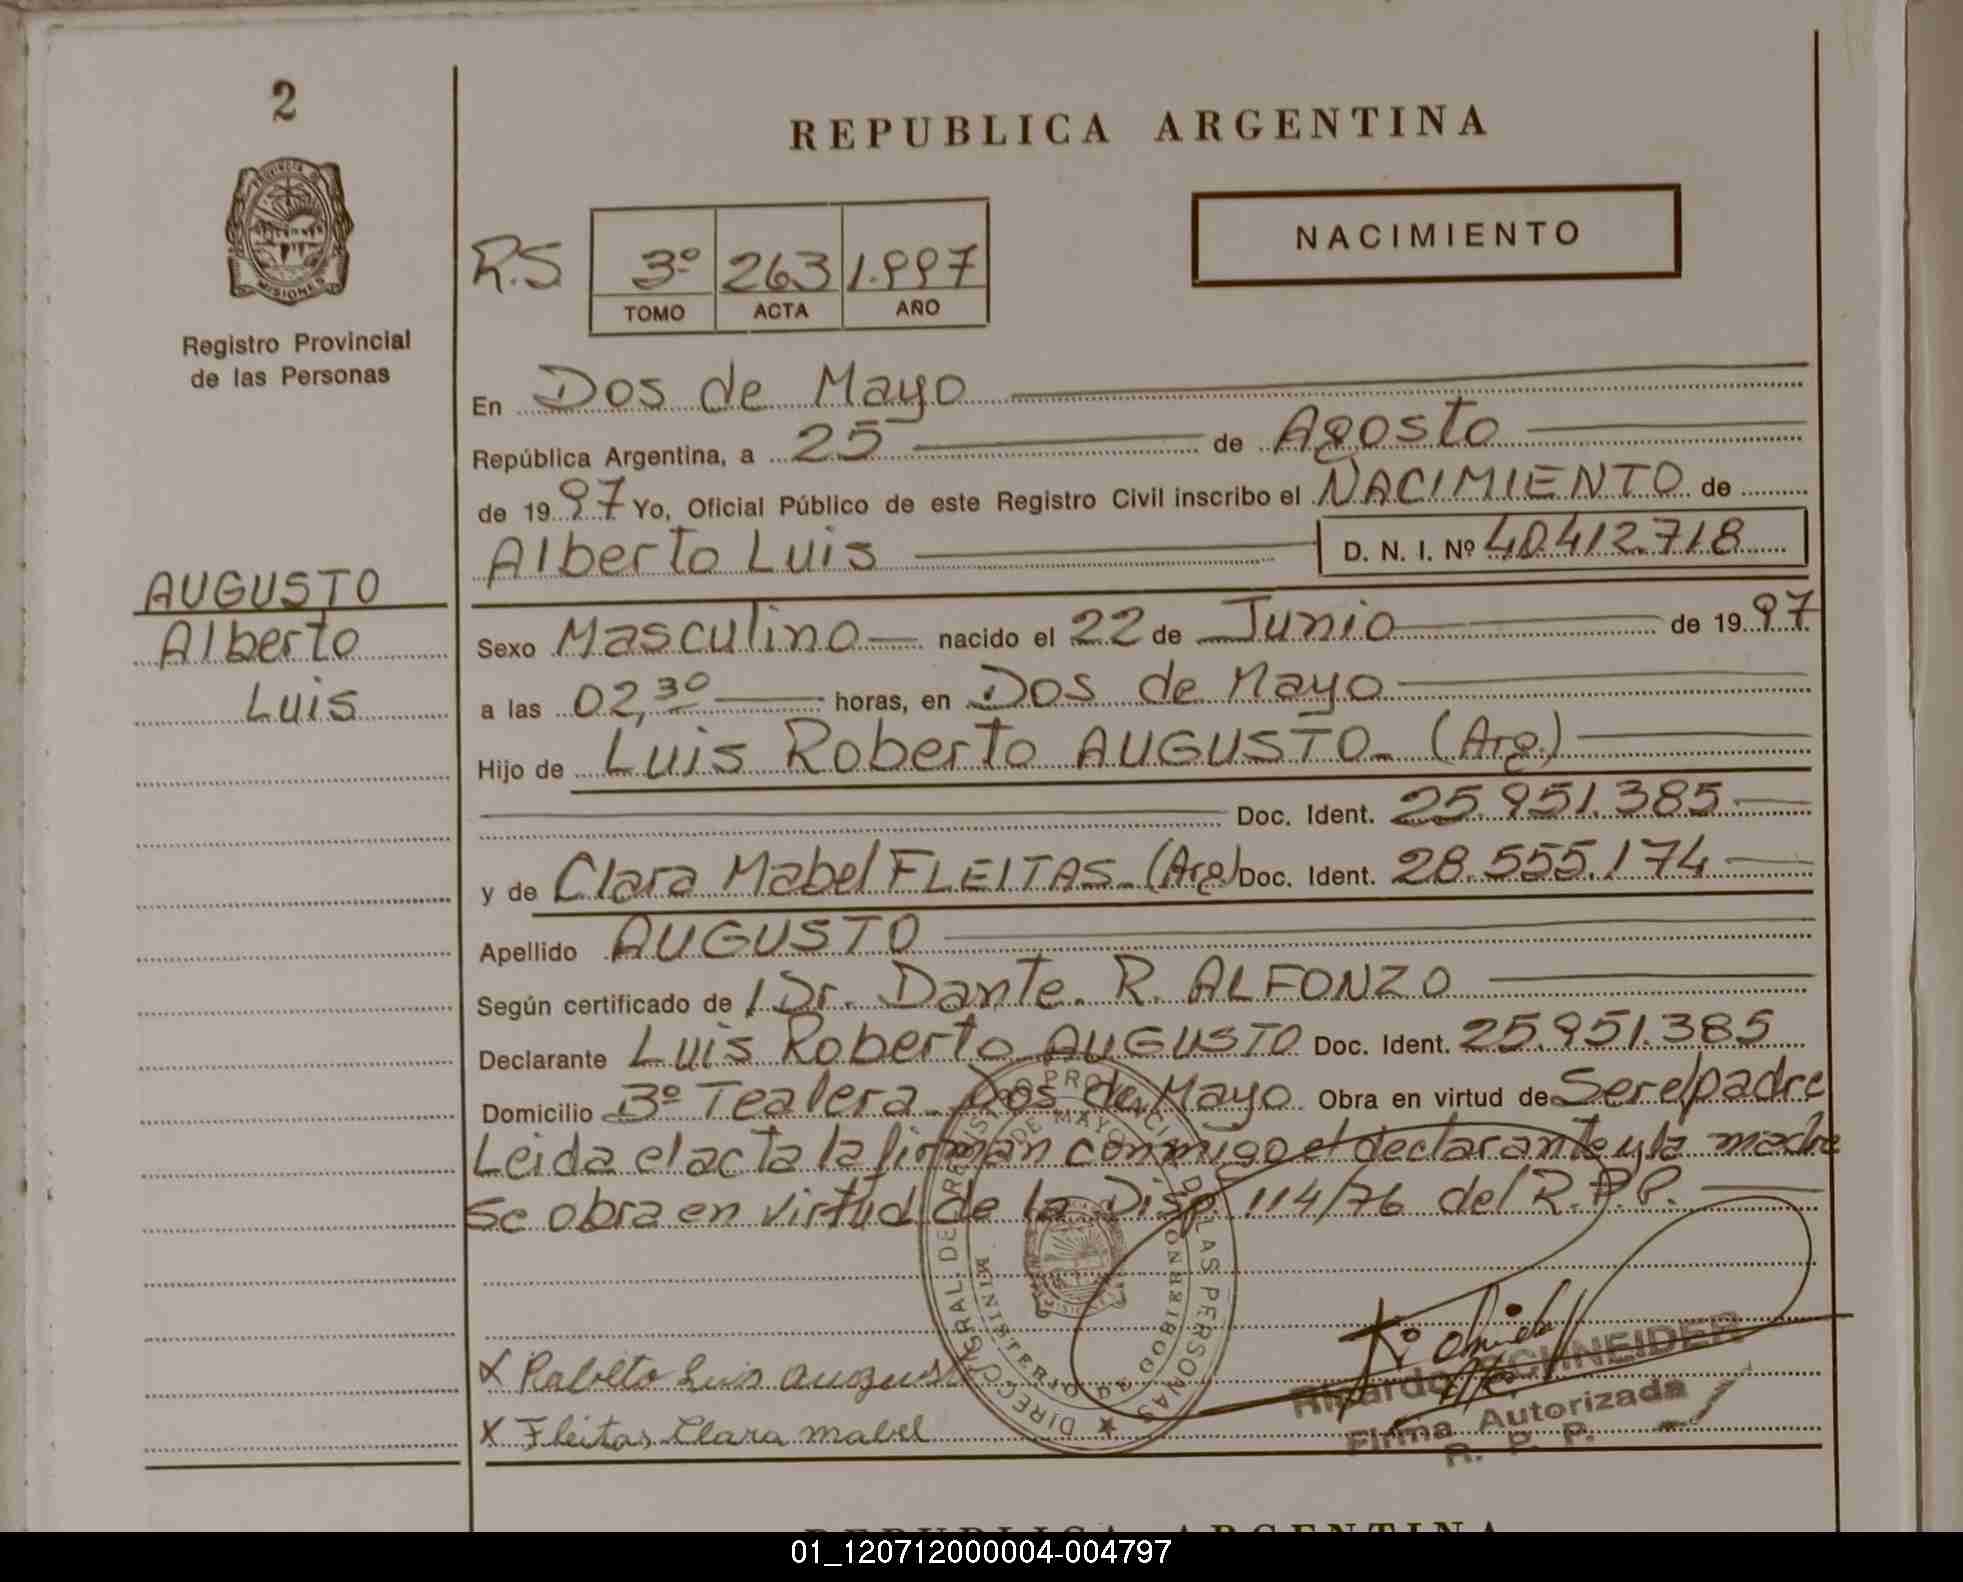 2
REPUBLICA ARGENTINA
PROVINCIA DE
MISIONES
Registro Provincial
de las Personas
NACIMIENTO
R.S
3º 263 1.997
TOMO ACTA AÑO
En Dos de Mayo
República Argentina, a 25 de Agosto
de 1997 Yo, Oficial Público de este Registro Civil inscribo el NACIMIENTO de
Alberto Luis D. N. I. Nº 40.412.718
AUGUSTO
Alberto
Luis
Sexo Masculino nacido el 22 de Junio de 1997
a las 02,30 horas, en Dos de Mayo
Hijo de Luis Roberto AUGUSTO (Arg.)
Doc. Ident. 25.951.385
y de Clara Mabel FLEITAS (Arg) Doc. Ident. 28.555.174
Apellido AUGUSTO
Según certificado de Dr. Dante R. ALFONZO
Declarante Luis Roberto AUGUSTO Doc. Ident. 25.951.385
Domicilio 3º Tealera Dos de Mayo Obra en virtud de Ser el padre
Leida el acta la firman conmigo el declarante y la madre
Se obra en virtud de la Disp. 114/76 del R.P.P.
DIRECCION GENERAL DE REGISTRO PROVINCIAL DE LAS PERSONAS
DOS DE MAYO
MINISTERIO DE GOBIERNO
MISIONES
X Robelto Luis augusto
X Fleitas Clara mabel
Ricardo SCHNEIDER
Firma Autorizada
R. P. P.
REPUBLICA ARGENTINA
01_120712000004-004797